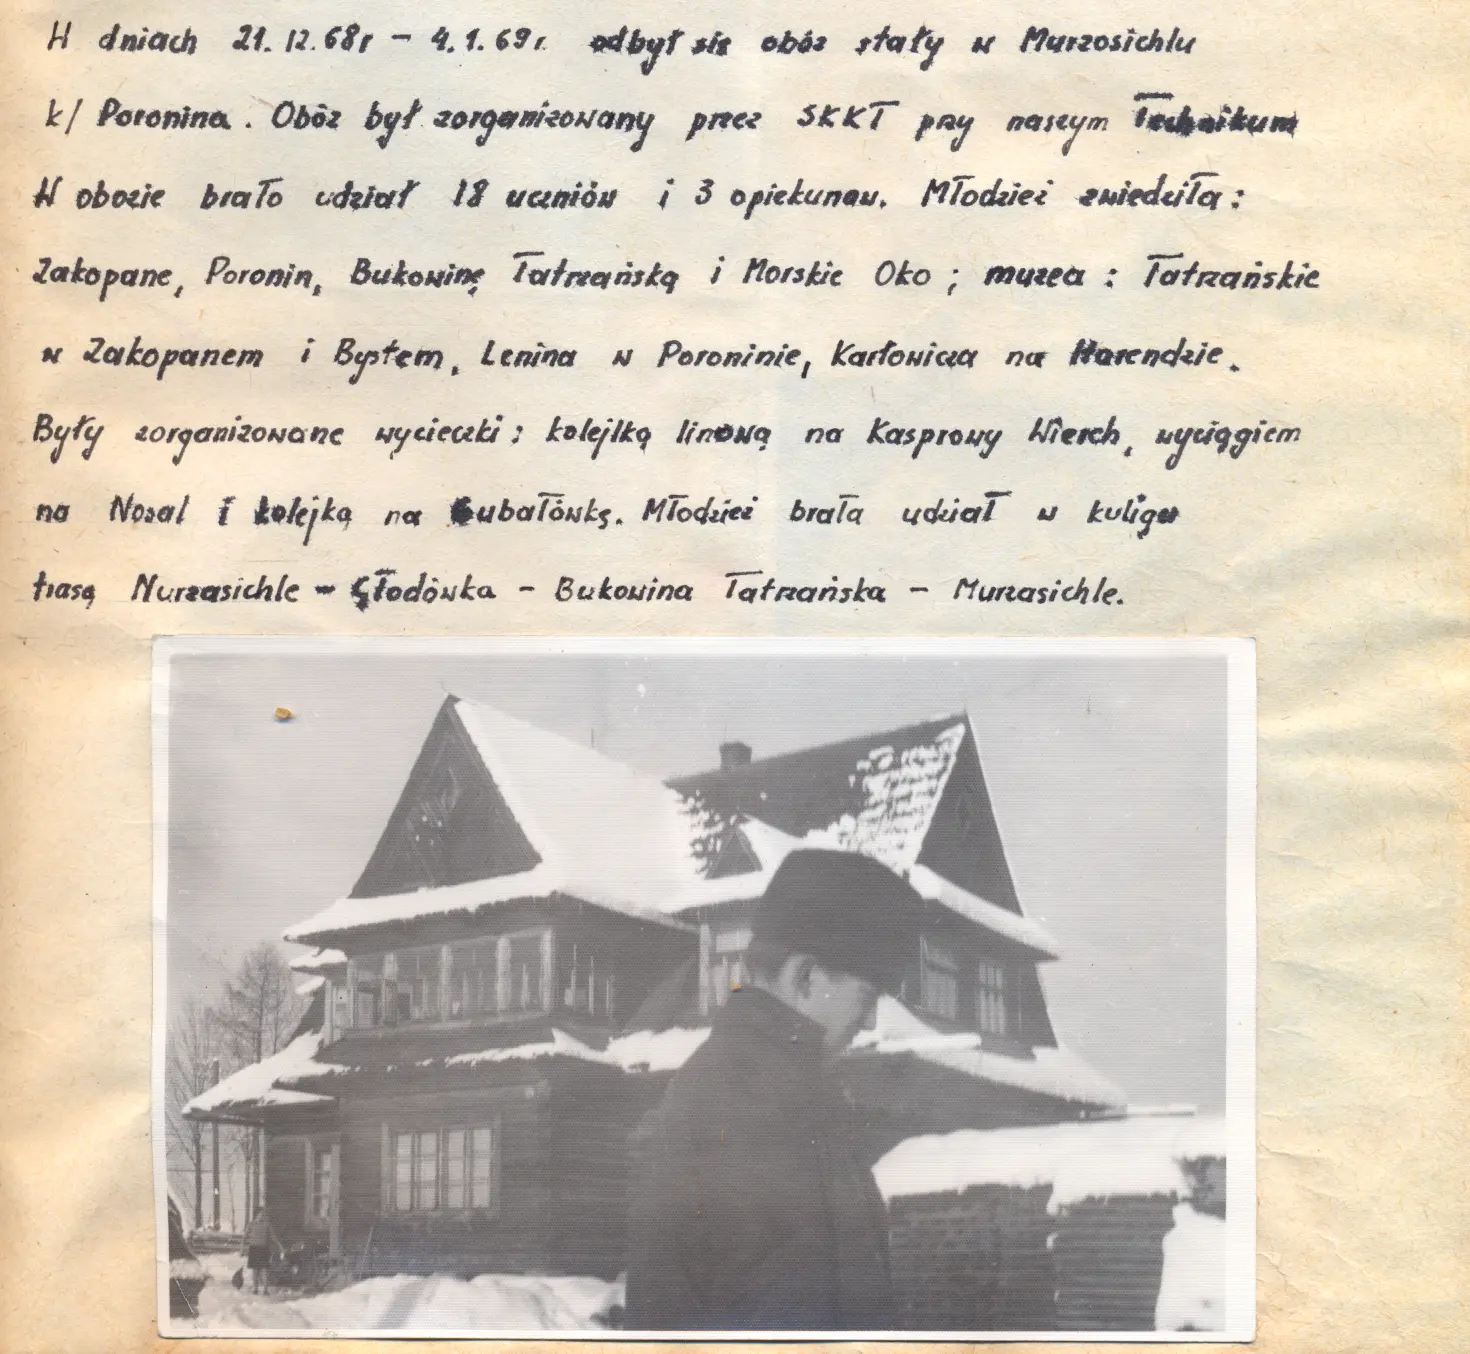 W dniach 21.12.68r - 4.1.69r. odbył się obóz stały w Murzosichlu
k/ Poronina. Obóz był zorganizowany przez SKKT przy naszym Technikum
W obozie brało udział 18 uczniów i 3 opiekunów. Młodzież zwiedziła:
Zakopane, Poronin, Bukowinę Tatrzańską i Morskie Oko; muzea: Tatrzańskie
w Zakopanem i Bystem, Lenina w Poroninie, Karłowicza na Harendzie.
Były zorganizowane wycieczki: kolejlką linową na Kasprowy Wierch, wyciągiem
na Nosal i kolejką na Gubałówkę. Młodzież brała udział w kuligu
trasą Murzasichle - Głodówka - Bukowina Tatrzańska - Murzasichle.